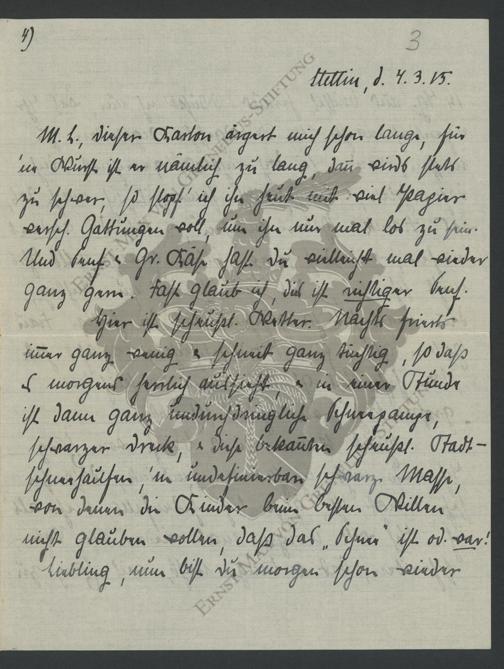 4)
3
Stettin, d. 4.3.15.
M. L., dieser Karton ärgert mich schon lange, für
'ne Wurst ist er nämlich zu lang, dañ wirds stets
zu schwer, so stopf' ich ihn heut mit viel Papier
versch. Gattungen voll, um ihn nur mal los zu sein.
Und Senf & Gr. Käse hast du vielleicht mal wieder
ganz gern. Fast glaub ich, das ist richtiger Senf.
Hier ist scheußl. Wetter. Nachts friert's
im̃er ganz wenig & schneit ganz tüchtig, so daß
es morgens herrlich aussieht, & in einer Stunde
ist dann ganz undurchdringliche Schneepampe,
schwarzer Dreck, & diese bekañten scheußl. Stadt-
schneehaufen, 'ne undefinierbar schwarze Masse,
von denen die Kinder beim besten Willen
nicht glauben wollen, daß das „Schnee" ist od. war!
Liebling, nun bist du morgen schon wieder
Ernst-Max von Grie
-Stiftung